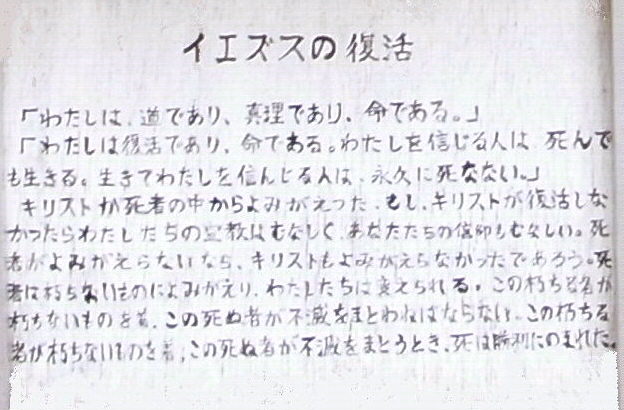 イエズスの復活
「わたしは、道であり、真理であり、命である。」
「わたしは復活であり、命である。わたしを信じる人は、死んで
も生きる。生きてわたしを信んじる人は、永久に死なない。」
キリストが死者の中からよみがえった、もし、キリストが復活しな
かったらわたしたちの宣教はむなしく、あなたたちの信仰もむなしい。死
者がよみがえらないなら、キリストもよみがえらなかったであろう。死
者は朽ちないものによみがえり、わたしたちは変えられる。この朽ちる者が
朽ちないものを着、この死ぬ者が不滅をまとわねばならない。この朽ちる
者が朽ちないものを着、この死ぬ者が不滅をまとうとき、死は勝利にのまれた。